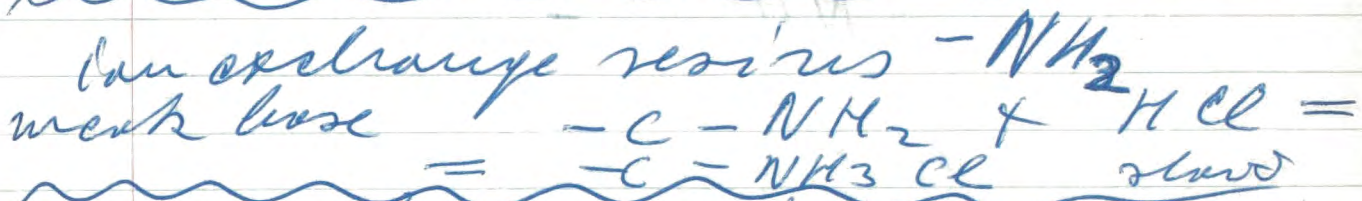 ion exchange resins -NH2
weak base -C-NH2 + HCl =
= -C-NH3Cl slow